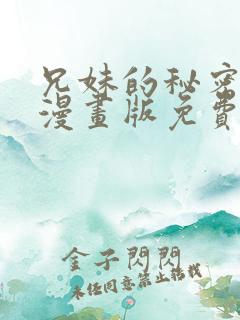 兄妹的秘密
漫畫版免費
金子閃閃
未经同意禁止转载